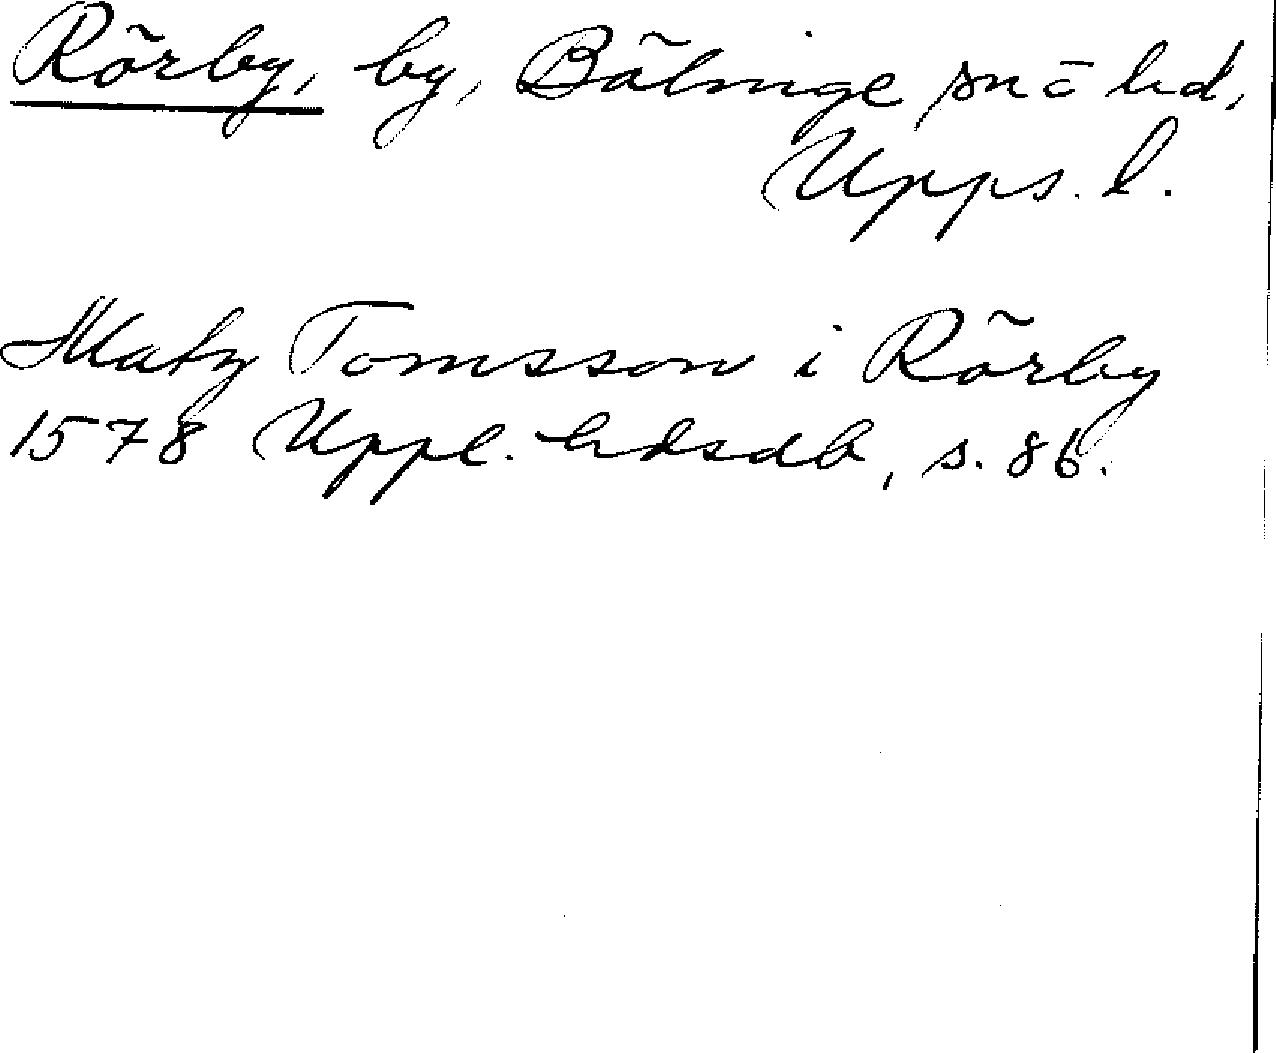 Rörby, by, Bälinge sn o hd,
Upps. l.
Matz Tomsson i Rörby
1578 Uppl. hdsdb, s. 86.